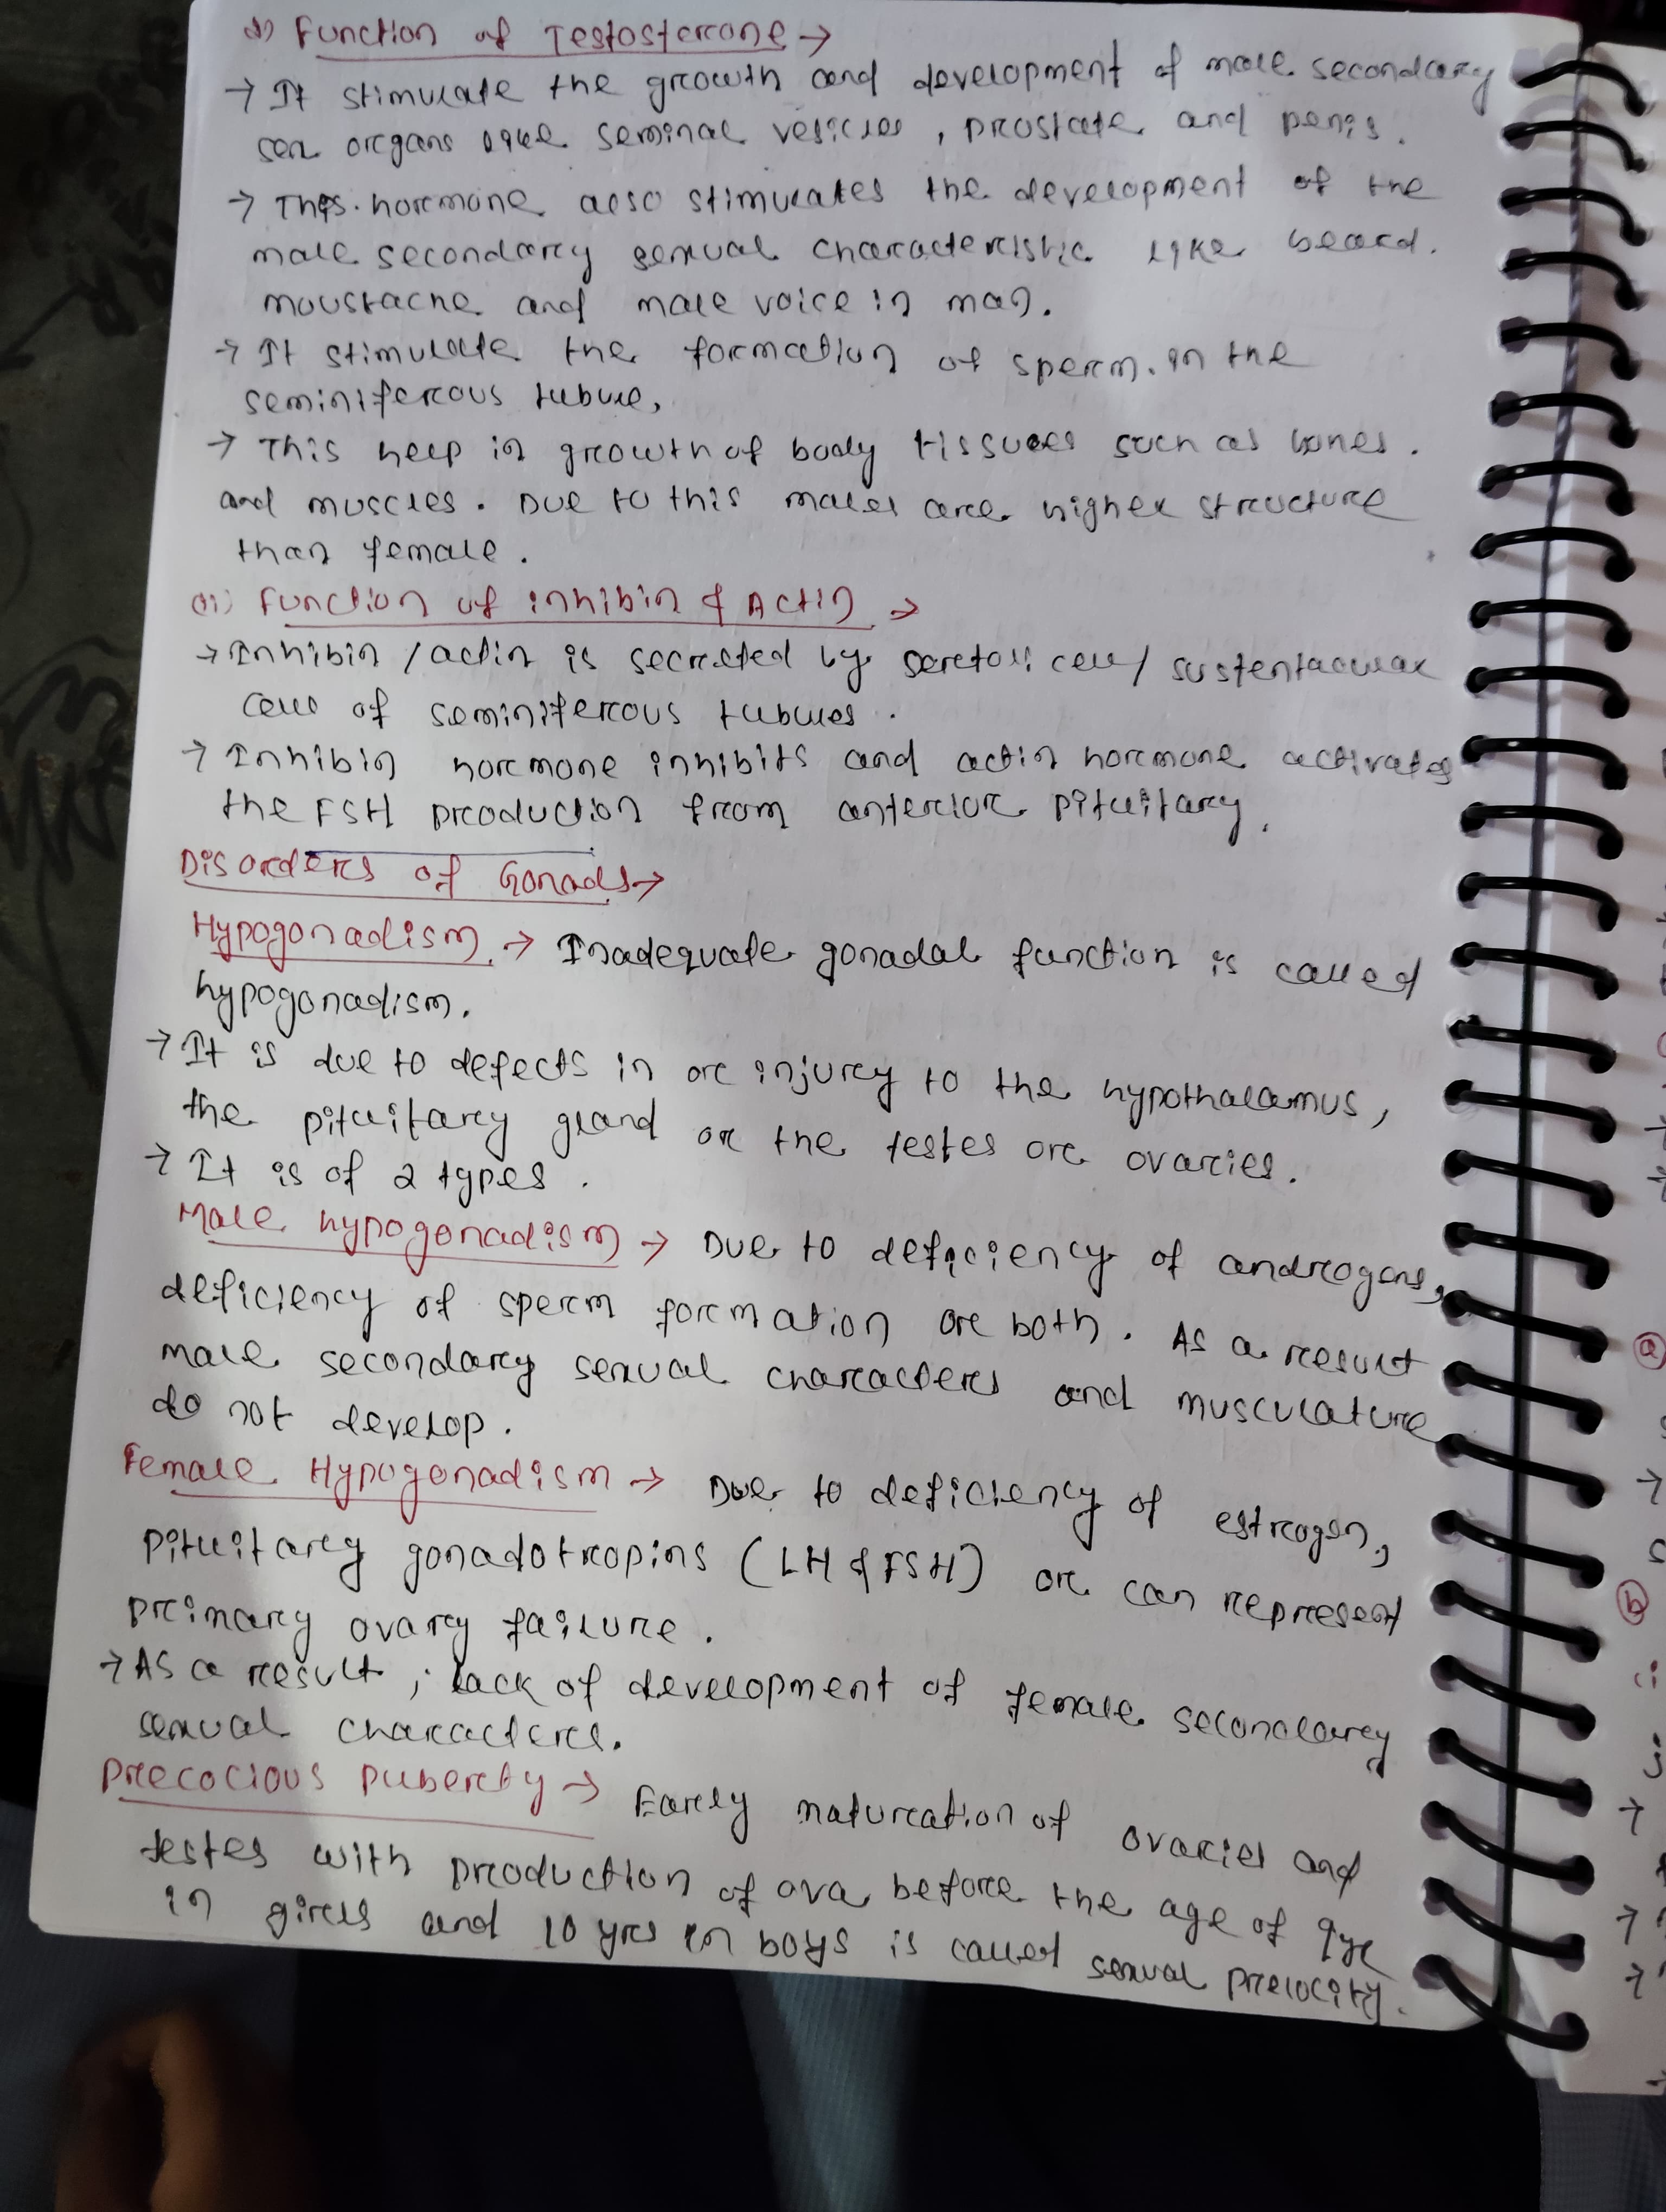 i) Function of Testosterone →
→ It stimulate the growth and development of male secondary
sex organs like seminal vesicles, prostate and penis.
→ This hormone also stimulates the development of the
male secondary sexual characteristic like beard.
moustache and male voice in man.
→ It stimulate the formation of sperm. in the
seminiferous tubule,
→ This help in growth of body tissues such as bones.
and muscles. Due to this males are higher structure
than female.
(ii) Function of inhibin & Actin →
→ Inhibin / actin is secreted by seretoli cell / sustentacular
cell of seminiferous tubules.
→ Inhibin hormone inhibits and actin hormone activates
the FSH production from anterior pituitary.
Disorders of Gonads →
Hypogonadism. → Inadequate gonadal function is called
hypogonadism.
→ It is due to defects in or injury to the hypothalamus,
the pituitary gland or the testes or ovaries.
→ It is of 2 types.
Male hypogonadism → Due to deficiency of androgens,
deficiency of sperm formation or both. As a result
male secondary sexual characters and musculature
do not develop.
Female Hypogonadism → Due to deficiency of estrogen,
pituitary gonadotropins (LH & FSH) or can represent
primary ovary failure.
→ As a result, lack of development of female secondary
sexual characters.
Precocious Puberty → Early maturation of ovaries and
testes with production of ova before the age of 9yr
in girls and 10 yrs in boys is called sexual precocity.
a
b